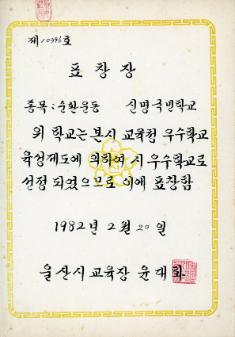 제 10396 호
표 창 장
종목 : 순환운동 신명국민학교
위 학교는 본시 교육청 우수학교
육성제도에 의하여 시 우수학교로
선정 되였으므로 이에 표창함
1982년 2월 20일
울산시교육장 윤대화